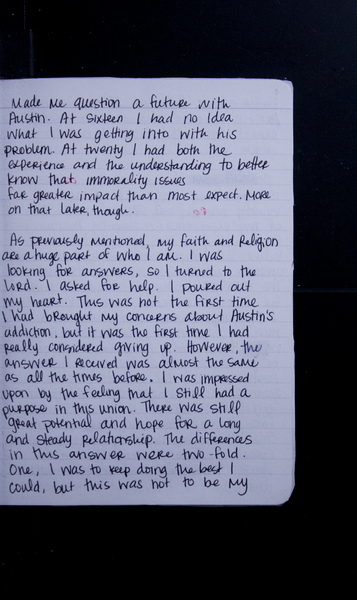 Made me question a future with
Austin. At sixteen I had no idea
what I was getting into with his
problem. At twenty I had both the
experience and the understanding to better
know that immorality issues
far greater impact than most expect. More
on that later, though.
As previously mentioned, my faith and Religion
are a huge part of who I am. I was
looking for answers, so I turned to the
Lord. I asked for help. I poured out
my heart. This was not the first time
I had brought my concerns about Austin's
addiction, but it was the first time I had
really considered giving up. However, the
answer I received was almost the same
as all the times before. I was impressed
upon by the feeling that I still had a
purpose in this union. There was still
great potential and hope for a long
and steady relationship. The differences
in this answer were two-fold.
One, I was to keep doing the best I
could, but this was not to be my